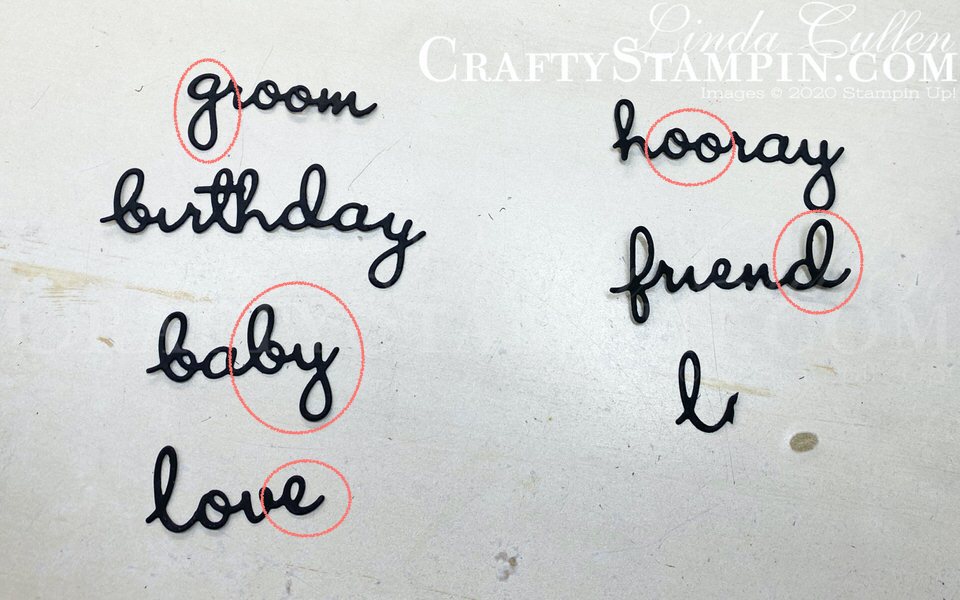 Linda Cullen
CraftyStampin.com
Images © 2020 Stampin Up!
groom
birthday
baby
love
hooray
friend
l